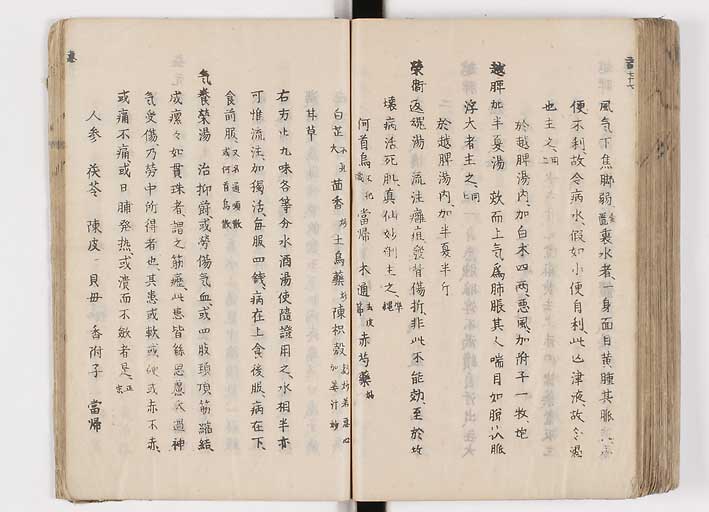 風気下焦脚弱裏水者一身面目黄腫其脈
便不利故令病水假如小便自利此亡津液故令渇
也主之
於越脾湯内加白朮四両悪風加附子一枚炮
越脾加半夏湯 欬而上気為肺脹其人喘目如脱状脈
浮大者主之
於越脾湯内加半夏半斤
榮衛返魂湯 流注癰疽發背傷折非此不能効至於
壊病活死肌真仙妙剤主之
何首烏 當帰 木通 赤芍藥
白芷 茴香 土烏藥 陳枳殻
甘草
右方止九味各等分水酒湯使隨證用之水相半亦
可惟流注加獨活每服四錢病在上食後服病在下
食前服 又名通順散 或何首烏散
氣養榮湯 治抑欝或勞傷気血或四肢頭項筋縮結
成瘰々如貫珠者謂之筋癧此患皆絲思慮太過神
気受傷乃勞中所得者也其患或軟或硬或赤不赤
或痛不痛或日晡発熱或潰而不斂者是
人参 茯苓 陳皮 貝母 香附子 當帰